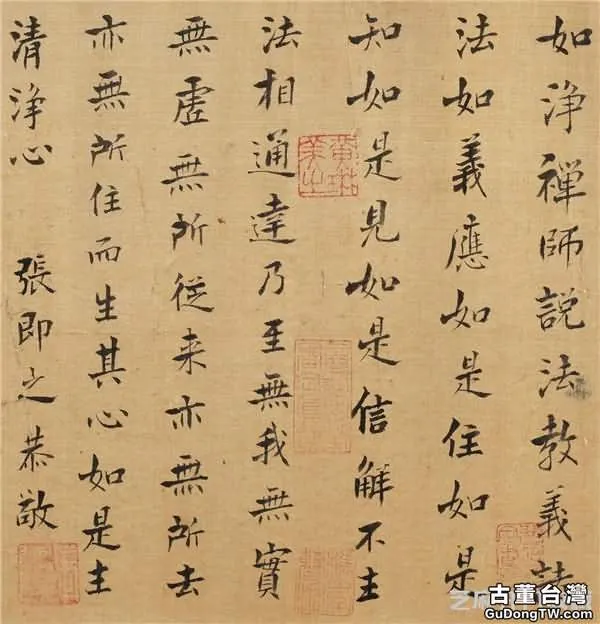 如淨禪師説法教義諸
法如義應如是住如是
知如是見如是信觧不生
法相通達乃至無我無實
無虛無所從来亦無所去
亦無所住而生其心如是生
清淨心 張即之恭敬
黃琳美之
古董台灣
GuDongTW.com